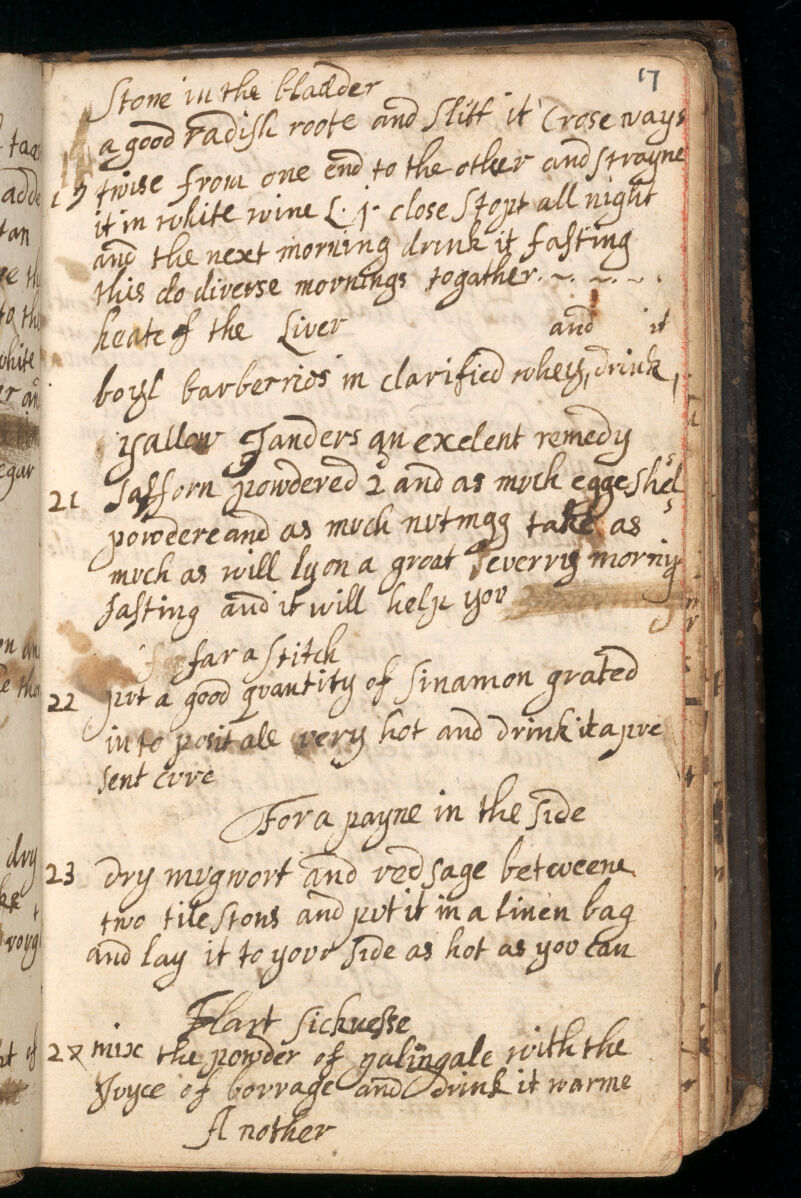 17
Stone in the bladder
a good radish roote and slitt it Crose ways
19 twise from one end to the other and strayne
it in white wine L. j. close stopt all night
and the next morning drink it fasting
this do diverse mornings togather.
heate of the Liver and it
boyl barberries in clarified whey, drink
yallow Janders an exelent remedy
21 Safforn powdered 2 and as much egge shels
powdere and as much nutmgg take as
much as will ly on a groat everry morning
fasting and it will help you
far a stitch
22 put a good quantity of sinamon grated
in to posit ale very hot and drink it a pre
sent cure
For a payne in the side
23 dry mugwort and red sage betweene
two tile stons and put it in a linen bag
and lay it to your side as hot as you can
Hart sicknesse
24 mix the powder of galingale with the
Juyce of borrage and drink it warme
Another